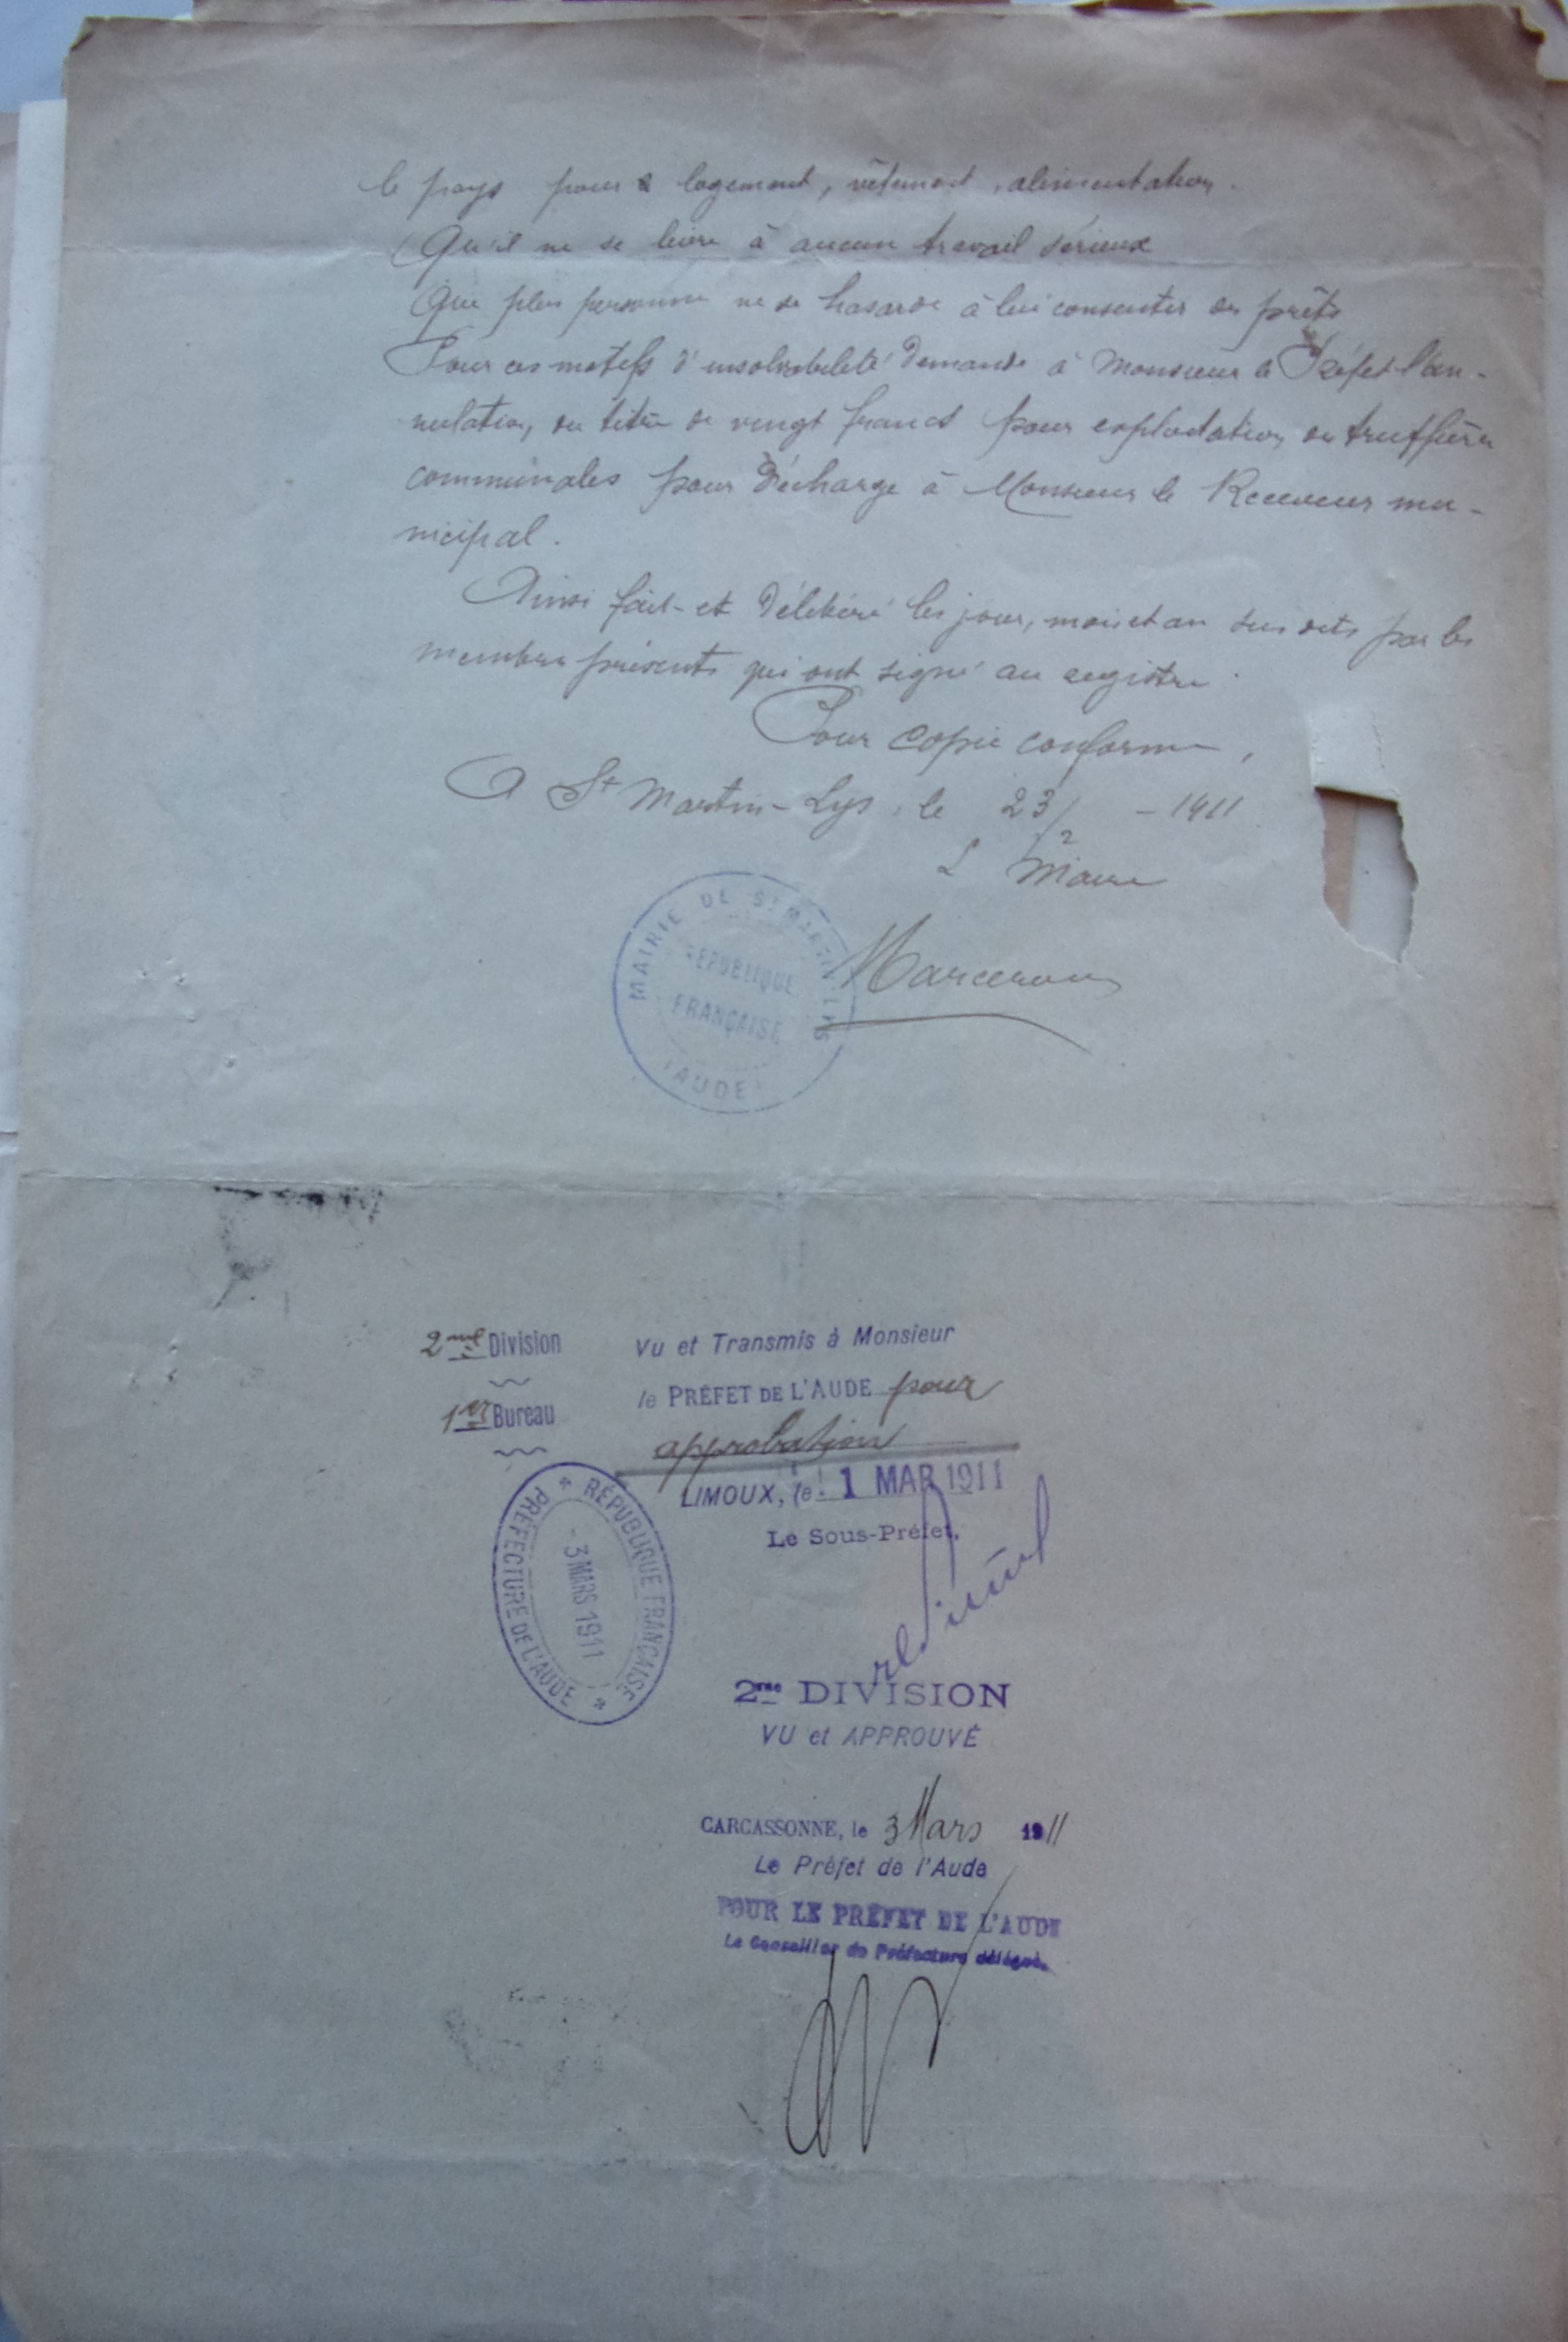 le pays pour logement, vêtement, alimentation.
Qu'il ne se livre à aucun travail sérieux
Que plus personne ne se hasarde à lui consentir des prêts
Pour ces motifs d'insolvabilité demande à Monsieur le Préfet l'an-
nulation, du titre de vingt francs pour exploitation de truffières
communales pour décharge à Monsieur le Receveur mu-
nicipal.
Ainsi fait et délibéré les jour, mois et an sus dits par les
membres présents qui ont signé au registre.
Pour copie conforme,
A St Martin-Lys, le 23/2 - 1911
L Maire
MAIRIE DE St MARTIN LYS
RÉPUBLIQUE
FRANÇAISE
(AUDE)
2me Division
1er Bureau
Vu et Transmis à Monsieur
le PRÉFET DE L'AUDE pour
approbation
LIMOUX, le 1 MAR 1911
Le Sous-Préfet,
RÉPUBLIQUE FRANÇAISE
PRÉFECTURE DE L'AUDE
- 3 MARS 1911
2me DIVISION
VU et APPROUVÉ
CARCASSONNE, le 3 Mars 1911
Le Préfet de l'Aude
POUR LE PRÉFET DE L'AUDE
Le Conseiller de Préfecture délégué,